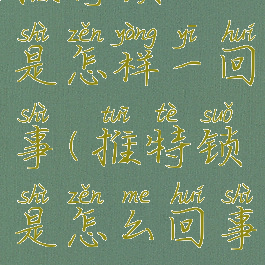 shì zěn yàng yī huí
是怎样一回
shì tuī tè suǒ
事(推特锁
shì zěn me huí shì
是怎么回事